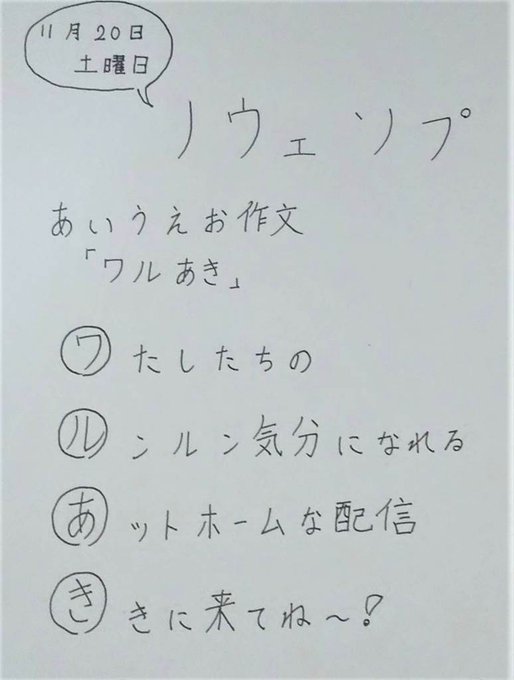 11月20日
土曜日
ノウェソプ
あいうえお作文
「ワルあき」
ワたしたちの
ルンルン気分になれる
あットホームな配信
ききに来てね〜!